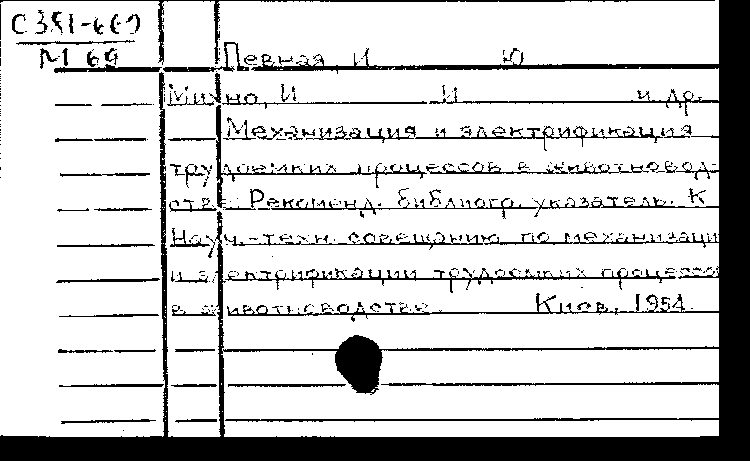 С351-660
М 69
Певная, И Ю
Михно, И И и др.
Механизация и электрификация
трудоемких процессов в животновод-
стве. Рекоменд. библиогр. указатель. К
Науч.-техн. совещанию по механизаци
и электрификации трудоемких процессо
в животноводстве. Киев, 1954.